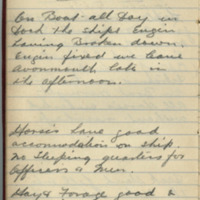 On Boat all Day in
Dock the ships Engin
having Broken down.
Engin fixed we leave
Avonmouth late in
the afternoon.
Horses have good
accomodation on ship
no sleeping quarters for
Officers & Men.
Hay & Forage good &